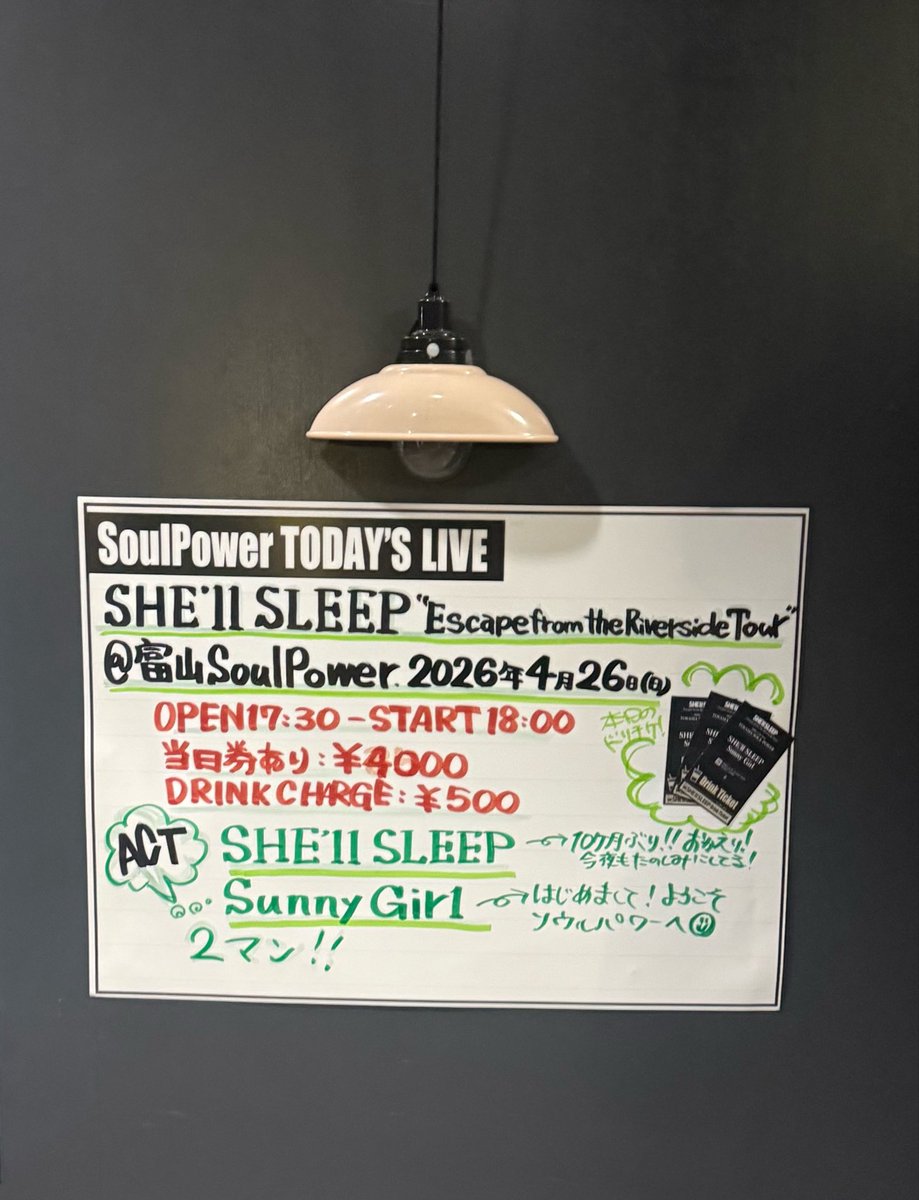 SoulPower TODAY'S LIVE
SHE'll SLEEP "Escape from the Riverside Tour"
@富山SoulPower. 2026年4月26日(日)
OPEN17:30-START18:00
本日の
ドリチケ!
当日券あり:¥4000
DRINK CHRGE:¥500
SHE'll SLEEP
Sunny Girl
Drink Ticket
ACT
SHE'll SLEEP→10ヶ月ぶり!!おかえり!
今夜もたのしみにしてる!
Sunny Girl→はじめまして!ようこそ
ソウルパワーへ☺
2マン!!